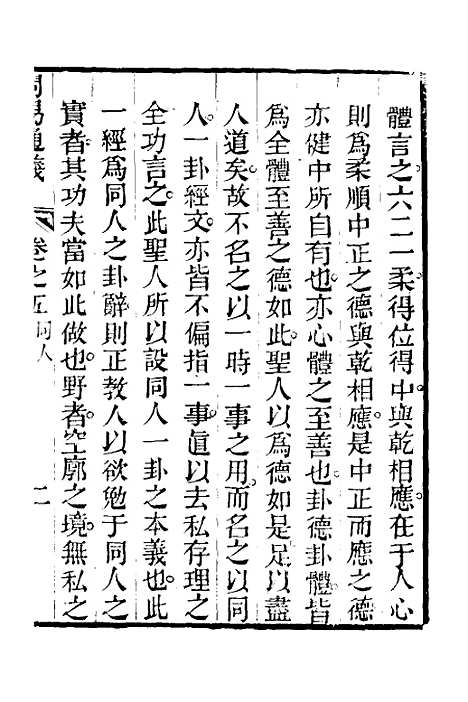 體言之六二一柔得位得中與乾相應在于人心
則爲柔順中正之德與乾相應是中正而應之德
亦健中所自有也亦心體之至善也卦德卦體皆
爲全體至善之德如此聖人以爲德如是足以盡
人道矣故不名之以一時一事之用而名之以同
人一卦經文亦皆不偏指一事眞以去私存理之
全功言之此聖人所以設同人一卦之本義也此
一經爲同人之卦辭則正教人以欲勉于同人之
實者其功夫當如此做也野者空廓之境無私之
周易通義 卷之五同人 二